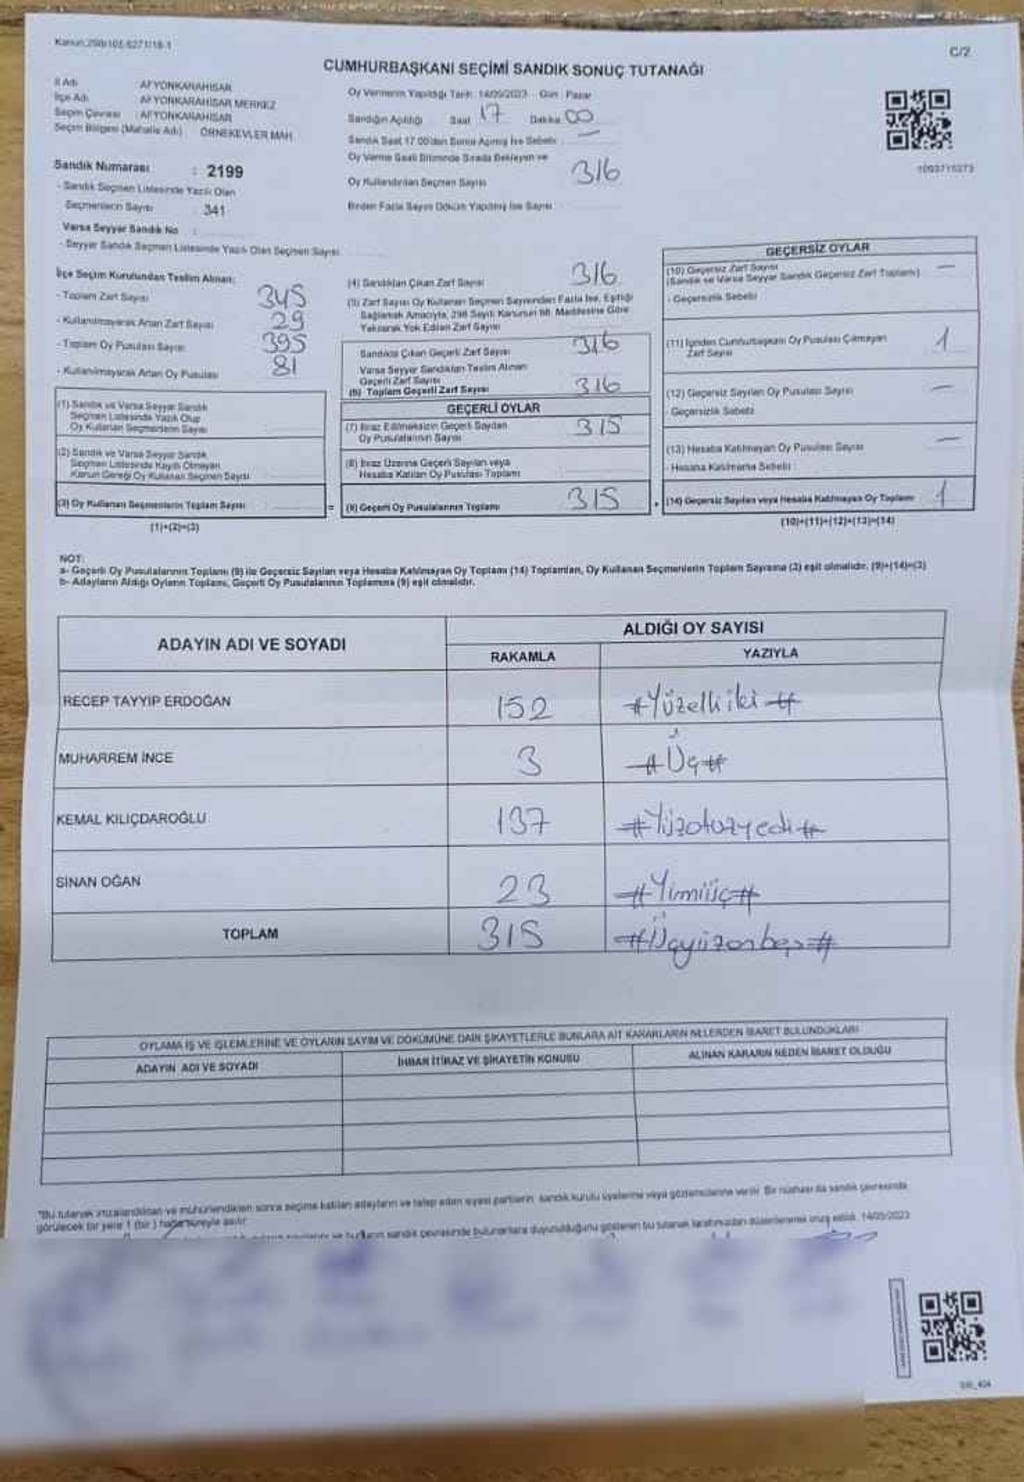 Kanun:298/105-6271/18-1
C/2
CUMHURBAŞKANI SEÇİMİ SANDIK SONUÇ TUTANAĞI
İl Adı : AFYONKARAHİSAR
İlçe Adı : AFYONKARAHİSAR MERKEZ
Seçim Çevresi : AFYONKARAHİSAR
Seçim Bölgesi (Mahalle Adı) : ÖRNEKEVLER MAH.
Sandık Numarası : 2199
- Sandık Seçmen Listesinde Yazılı Olan
Seçmenlerin Sayısı : 341
Varsa Seyyar Sandık No :
- Seyyar Sandık Seçmen Listesinde Yazılı Olan Seçmen Sayısı
Oy Vermenin Yapıldığı Tarih: 14/05/2023 Gün : Pazar
Sandığın Açıldığı Saat : 17 Dakika : 00
Sandık Saat 17.00'dan Sonra Açılmış İse Sebebi : —
Oy Verme Saati Bitiminde Sırada Bekleyen ve
Oy Kullandırılan Seçmen Sayısı 316
Birden Fazla Sayım Döküm Yapılmış İse Sayısı
İlçe Seçim Kurulundan Teslim Alınan:
- Toplam Zarf Sayısı 345
- Kullanılmayarak Artan Zarf Sayısı 29
- Toplam Oy Pusulası Sayısı 395
- Kullanılmayarak Artan Oy Pusulası 81
(1) Sandık ve Varsa Seyyar Sandık
Seçmen Listesinde Yazılı Olup
Oy Kullanan Seçmenlerin Sayısı
(2) Sandık ve Varsa Seyyar Sandık
Seçmen Listesinde Kayıtlı Olmayan
Kanun Gereği Oy Kullanan Seçmen Sayısı
(3) Oy Kullanan Seçmenlerin Toplam Sayısı
(1)+(2)=(3)
(4) Sandıktan Çıkan Zarf Sayısı 316
(5) Zarf Sayısı Oy Kullanan Seçmen Sayısından Fazla İse, Eşitliği
Sağlamak Amacıyla, 298 Sayılı Kanunun 98. Maddesine Göre
Yakılarak Yok Edilen Zarf Sayısı
Sandıkta Çıkan Geçerli Zarf Sayısı 316
Varsa Seyyar Sandıktan Teslim Alınan
Geçerli Zarf Sayısı
(6) Toplam Geçerli Zarf Sayısı 316
GEÇERLİ OYLAR
(7) İtiraz Edilmeksizin Geçerli Sayılan
Oy Pusulalarının Sayısı 315
(8) İtiraz Üzerine Geçerli Sayılan veya
Hesaba Katılan Oy Pusulası Toplamı
= (9) Geçerli Oy Pusulalarının Toplamı 315
GEÇERSİZ OYLAR
(10) Geçersiz Zarf Sayısı —
(Sandık ve Varsa Seyyar Sandık Geçersiz Zarf Toplamı)
- Geçersizlik Sebebi
(11) İçinden Cumhurbaşkanı Oy Pusulası Çıkmayan
Zarf Sayısı 1
(12) Geçersiz Sayılan Oy Pusulası Sayısı —
- Geçersizlik Sebebi
(13) Hesaba Katılmayan Oy Pusulası Sayısı —
- Hesaba Katılmama Sebebi
+ (14) Geçersiz Sayılan veya Hesaba Katılmayan Oy Toplamı 1
(10)+(11)+(12)+(13)=(14)
NOT:
a- Geçerli Oy Pusulalarının Toplamı (9) ile Geçersiz Sayılan veya Hesaba Katılmayan Oy Toplamı (14) Toplamları, Oy Kullanan Seçmenlerin Toplam Sayısına (3) eşit olmalıdır. (9)+(14)=(3)
b- Adayların Aldığı Oyların Toplamı, Geçerli Oy Pusulalarının Toplamına (9) eşit olmalıdır.
ADAYIN ADI VE SOYADI
ALDIĞI OY SAYISI
RAKAMLA YAZIYLA
RECEP TAYYİP ERDOĞAN 152 #Yüzelliiki#
MUHARREM İNCE 3 #Üç#
KEMAL KILIÇDAROĞLU 137 #Yüzotuzyedi#
SİNAN OĞAN 23 #Yirmiüç#
TOPLAM 315 #Üçyüzonbeş#
OYLAMA İŞ VE İŞLEMLERİNE VE OYLARIN SAYIM VE DÖKÜMÜNE DAİR ŞİKAYETLERLE BUNLARA AİT KARARLARIN NELERDEN İBARET BULUNDUKLARI
ADAYIN ADI VE SOYADI İHBAR İTİRAZ VE ŞİKAYETİN KONUSU ALINAN KARARIN NEDEN İBARET OLDUĞU
"Bu tutanak imzalandıktan ve mühürlendikten sonra seçime katılan adayların ve talep eden siyasi partilerin sandık kurulu üyelerine veya gözlemcilerine verilir. Bir nüshası da sandık çevresinde
görülecek bir yere 1 (bir) hafta süreyle asılır.
sandık çevresinde bulunanlara duyurulduğunu gösteren bu tutanak tarafımızdan düzenlenerek imza edildi. 14/05/2023